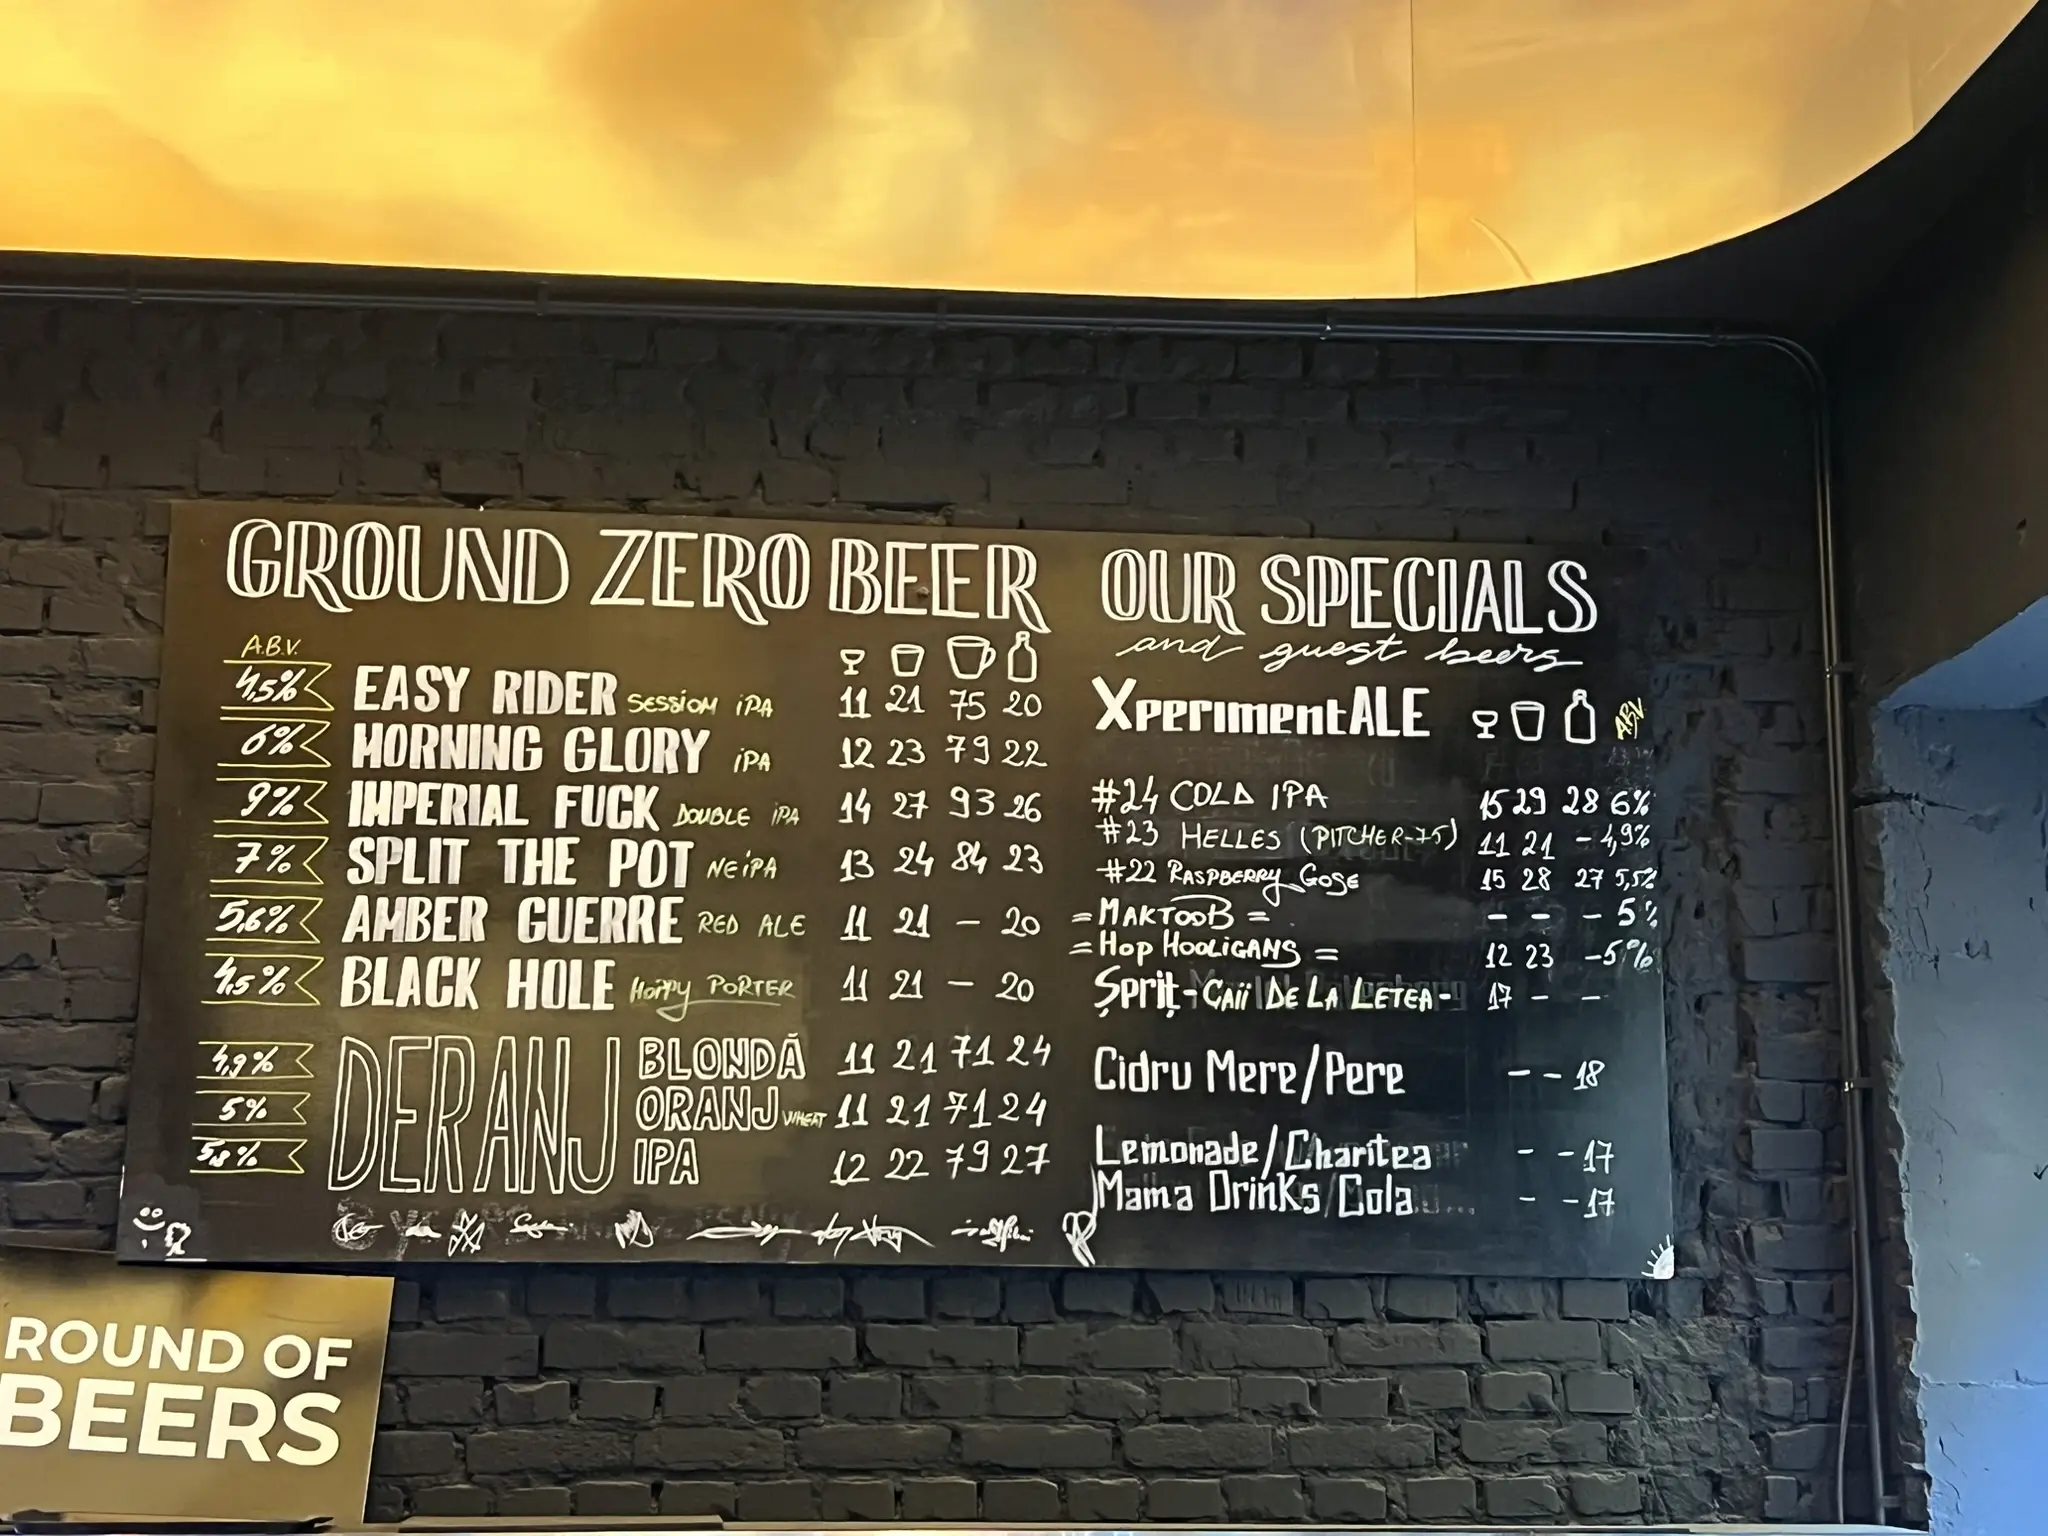 GROUND ZERO BEER
A.B.V.
4,5% EASY RIDER SESSION IPA 11 21 75 20
6% MORNING GLORY IPA 12 23 79 22
9% IMPERIAL FUCK DOUBLE IPA 14 27 93 26
7% SPLIT THE POT NEIPA 13 24 84 23
5,6% AMBER GUERRE RED ALE 11 21 - 20
4,5% BLACK HOLE HOPPY PORTER 11 21 - 20
DERANJ
4,9% BLONDĂ 11 21 71 24
5% ORANJ WHEAT 11 21 71 24
5,8% IPA 12 22 79 27
OUR SPECIALS
and guest beers
XperimentALE A.B.V.
#24 COLD IPA 15 29 28 6%
#23 HELLES (PITCHER-75) 11 21 - 4,9%
#22 RASPBERRY GOSE 15 28 27 5,5%
=MAKTOOB= - - - 5%
=HOP HOOLIGANS= 12 23 - 5%
Șpriț - CAII DE LA LETEA - 17 - -
Cidru Mere/Pere - - 18
Lemonade/Charitea - - 17
Mama Drinks/Cola - - 17
ROUND OF
BEERS